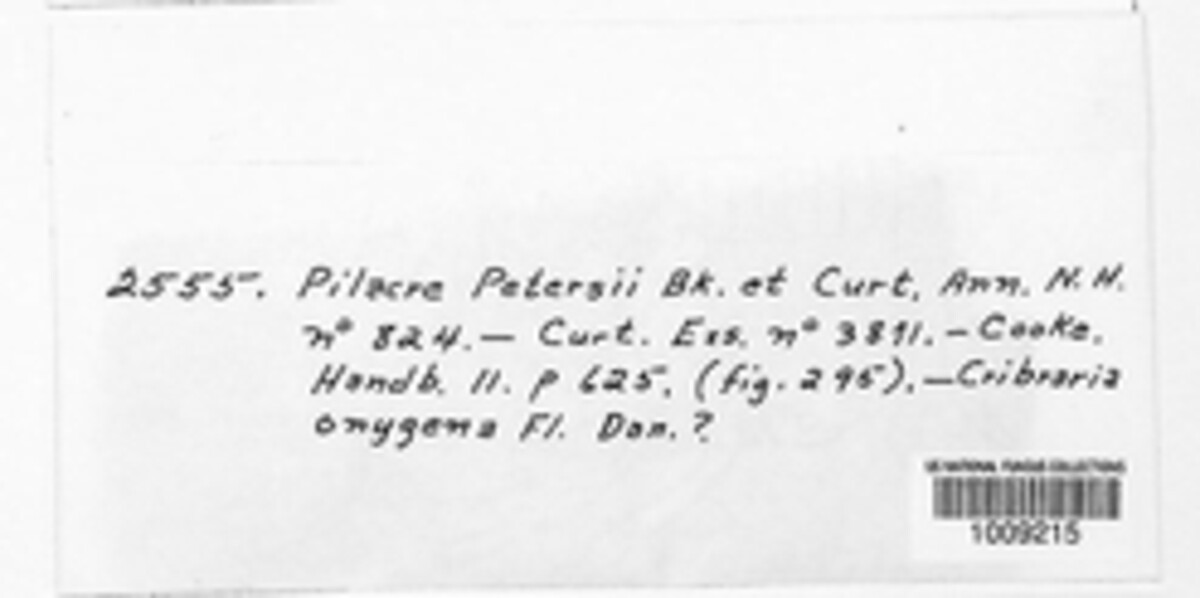 2555. Pilacre Petersii Bk. et Curt, Ann. N. H.
nº 824. — Curt. Exs. nº 3891. — Cooke.
Handb. II. p 625. (fig. 295). — Cribraria
onygena Fl. Dan. ?
US NATIONAL FUNGUS COLLECTIONS
1009215